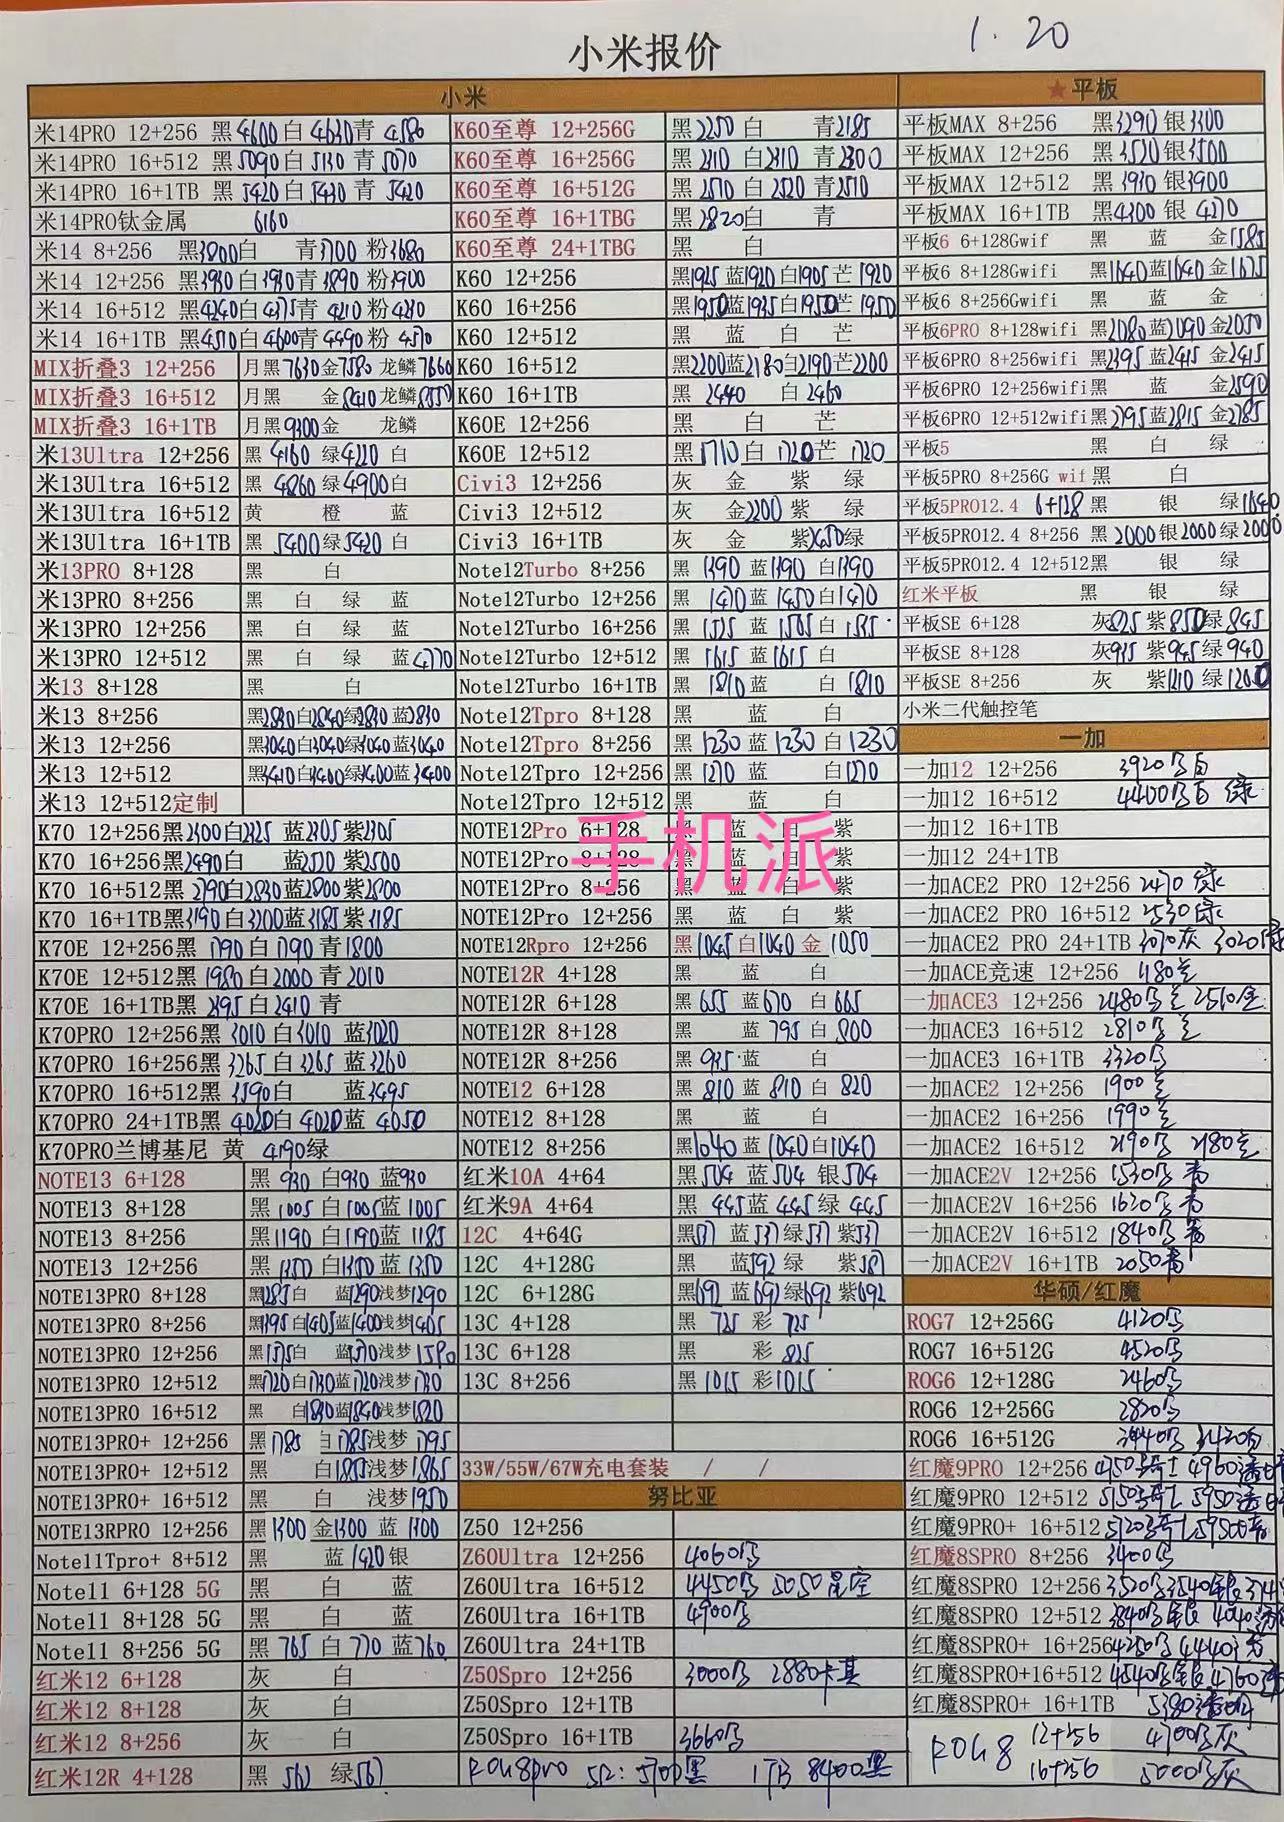 小米报价
1.20
小米
米14PRO 12+256 黑4600白4630青4580
米14PRO 16+512 黑5090白5130青5070
米14PRO 16+1TB 黑5420白5430青5420
米14PRO钛金属 6160
米14 8+256 黑3800白 青3700粉3680
米14 12+256 黑3930白3930青3890粉3900
米14 16+512 黑4240白4375青4210粉4230
米14 16+1TB 黑4510白4600青4490粉4570
MIX折叠3 12+256 月黑7630金7580龙鳞7660
MIX折叠3 16+512 月黑 金8410龙鳞8550
MIX折叠3 16+1TB 月黑9300金 龙鳞
米13Ultra 12+256 黑4160绿4220白
米13Ultra 16+512 黑4860绿4900白
米13Ultra 16+512 黄 橙 蓝
米13Ultra 16+1TB 黑5400绿5420白
米13PRO 8+128 黑 白
米13PRO 8+256 黑 白 绿 蓝
米13PRO 12+256 黑 白 绿 蓝
米13PRO 12+512 黑 白 绿 蓝4770
米13 8+128 黑 白
米13 8+256 黑2830白2840绿2830蓝2830
米13 12+256 黑3040白3040绿3040蓝3040
米13 12+512 黑3410白3400绿3400蓝3400
米13 12+512定制
K70 12+256黑2300白2325 蓝2305紫2305
K70 16+256黑2490白 蓝2520紫2500
K70 16+512黑2790白2830蓝2800紫2800
K70 16+1TB黑3190白3200蓝3185紫3185
K70E 12+256黑1790白1790青1800
K70E 12+512黑1980白2000青2010
K70E 16+1TB黑2395白2410青
K70PRO 12+256黑3010白3010蓝3020
K70PRO 16+256黑3265白3265蓝3260
K70PRO 16+512黑3590白 蓝3495
K70PRO 24+1TB黑4020白4020蓝4050
K70PRO兰博基尼 黄 4190绿
NOTE13 6+128 黑930白930蓝930
NOTE13 8+128 黑1005白1005蓝1005
NOTE13 8+256 黑1190白1190蓝1185
NOTE13 12+256 黑1350白1350蓝1350
NOTE13PRO 8+128 黑1285白 蓝1290浅梦1290
NOTE13PRO 8+256 黑1395白1405蓝1400浅梦1405
NOTE13PRO 12+256 黑1575白 蓝1570浅梦1580
NOTE13PRO 12+512 黑1720白1730蓝1720浅梦1730
NOTE13PRO 16+512 黑 白1830蓝1840浅梦1820
NOTE13PRO+ 12+256 黑1785白1785浅梦1795
NOTE13PRO+ 12+512 黑 白1855浅梦1865
NOTE13PRO+ 16+512 黑 白 浅梦1950
NOTE13RPRO 12+256 黑1300金1300蓝1300
Note11Tpro+ 8+512 黑 蓝1420银
Note11 6+128 5G 黑 白 蓝
Note11 8+128 5G 黑 白 蓝
Note11 8+256 5G 黑765白770蓝760
红米12 6+128 灰 白
红米12 8+128 灰 白
红米12 8+256 灰 白
红米12R 4+128 黑 绿
K60至尊 12+256G 黑2250白 青2185
K60至尊 16+256G 黑2310白2310青2300
K60至尊 16+512G 黑2510白2520青2510
K60至尊 16+1TBG 黑2820白 青
K60至尊 24+1TBG 黑 白
K60 12+256 黑1925蓝1920白1905芒1920
K60 16+256 黑1950蓝1935白1950芒1950
K60 12+512 黑 蓝 白 芒
K60 16+512 黑2200蓝2180白2190芒2200
K60 16+1TB 黑2440 白2460
K60E 12+256 黑 白 芒
K60E 12+512 黑1710白1720芒1720
Civi3 12+256 灰 金 紫 绿
Civi3 12+512 灰 金2200紫 绿
Civi3 16+1TB 灰 金 紫2450绿
Note12Turbo 8+256 黑1390蓝1390白1390
Note12Turbo 12+256 黑1470蓝1450白1470
Note12Turbo 16+256 黑1525蓝1505白1535
Note12Turbo 12+512 黑1615蓝1615白
Note12Turbo 16+1TB 黑1810蓝 白1810
Note12Tpro 8+128 黑 蓝 白
Note12Tpro 8+256 黑1230蓝1230白1230
Note12Tpro 12+256 黑1270蓝 白1270
Note12Tpro 12+512 黑 蓝 白
NOTE12Pro 6+128 黑 蓝 白 紫
NOTE12Pro 8+128 黑 蓝 白 紫
手机派
NOTE12Pro 8+256 黑 蓝 白 紫
NOTE12Pro 12+256 黑 蓝 白 紫
NOTE12Rpro 12+256 黑1045白1040金1050
NOTE12R 4+128 黑 蓝 白
NOTE12R 6+128 黑655蓝670白665
NOTE12R 8+128 黑 蓝795白800
NOTE12R 8+256 黑935蓝 白
NOTE12 6+128 黑810蓝810白820
NOTE12 8+128 黑 蓝 白
NOTE12 8+256 黑1040蓝1040白1040
红米10A 4+64 黑504蓝504银504
红米9A 4+64 黑445蓝445绿445
12C 4+64G 黑537蓝537绿537紫537
12C 4+128G 黑 蓝592绿 紫587
12C 6+128G 黑692蓝692绿692紫692
13C 4+128 黑725彩725
13C 6+128 黑 彩825
13C 8+256 黑1015彩1015
33W/55W/67W充电套装 / /
努比亚
Z50 12+256
Z60Ultra 12+256 4060
Z60Ultra 16+512 4450 5050星空
Z60Ultra 16+1TB 4900
Z60Ultra 24+1TB
Z50Spro 12+256 3000 2880卡其
Z50Spro 12+1TB
Z50Spro 16+1TB 3660
ROG8pro 512:5700黑 1TB 8400黑
★平板
平板MAX 8+256 黑3290银3300
平板MAX 12+256 黑3520银3500
平板MAX 12+512 黑3910银3900
平板MAX 16+1TB 黑4300银4270
平板6 6+128Gwif 黑 蓝 金1585
平板6 8+128Gwifi 黑1640蓝1640金1675
平板6 8+256Gwifi 黑 蓝 金
平板6PRO 8+128wifi 黑2080蓝2090金2050
平板6PRO 8+256wifi 黑2395蓝2415金2415
平板6PRO 12+256wifi黑 蓝 金2590
平板6PRO 12+512wifi黑2795蓝2815金2785
平板5 黑 白 绿
平板5PRO 8+256G wif黑 白
平板5PRO12.4 6+128 黑 银 绿1640
平板5PRO12.4 8+256 黑2000银2000绿2000
平板5PRO12.4 12+512黑 银 绿
红米平板 黑 银 绿
平板SE 6+128 灰825紫850绿845
平板SE 8+128 灰935紫945绿940
平板SE 8+256 灰 紫1210绿1200
小米二代触控笔
一加
一加12 12+256 3920 白
一加12 16+512 4400 白 绿
一加12 16+1TB
一加12 24+1TB
一加ACE2 PRO 12+256 2470绿
一加ACE2 PRO 16+512 2530绿
一加ACE2 PRO 24+1TB 3070灰 3020绿
一加ACE竞速 12+256 1180
一加ACE3 12+256 2480 2510金
一加ACE3 16+512 2810
一加ACE3 16+1TB 3320
一加ACE2 12+256 1900
一加ACE2 16+256 1990
一加ACE2 16+512 2190 2180
一加ACE2V 12+256 1530 青
一加ACE2V 16+256 1620 青
一加ACE2V 16+512 1840 青
一加ACE2V 16+1TB 2050青
华硕/红魔
ROG7 12+256G 4120
ROG7 16+512G 4520
ROG6 12+128G 2460
ROG6 12+256G 2820
ROG6 16+512G 3440 3420白
红魔9PRO 12+256 4960
红魔9PRO 12+512 5150 5950
红魔9PRO+ 16+512 5120
红魔8SPRO 8+256 3400
红魔8SPRO 12+256 3520 3540
红魔8SPRO 12+512 3840 4040
红魔8SPRO+ 16+256 4250 4440
红魔8SPRO+16+512 4540 4760
红魔8SPRO+ 16+1TB 5380
ROG8 12+256 4700 灰
16+256 5000 灰